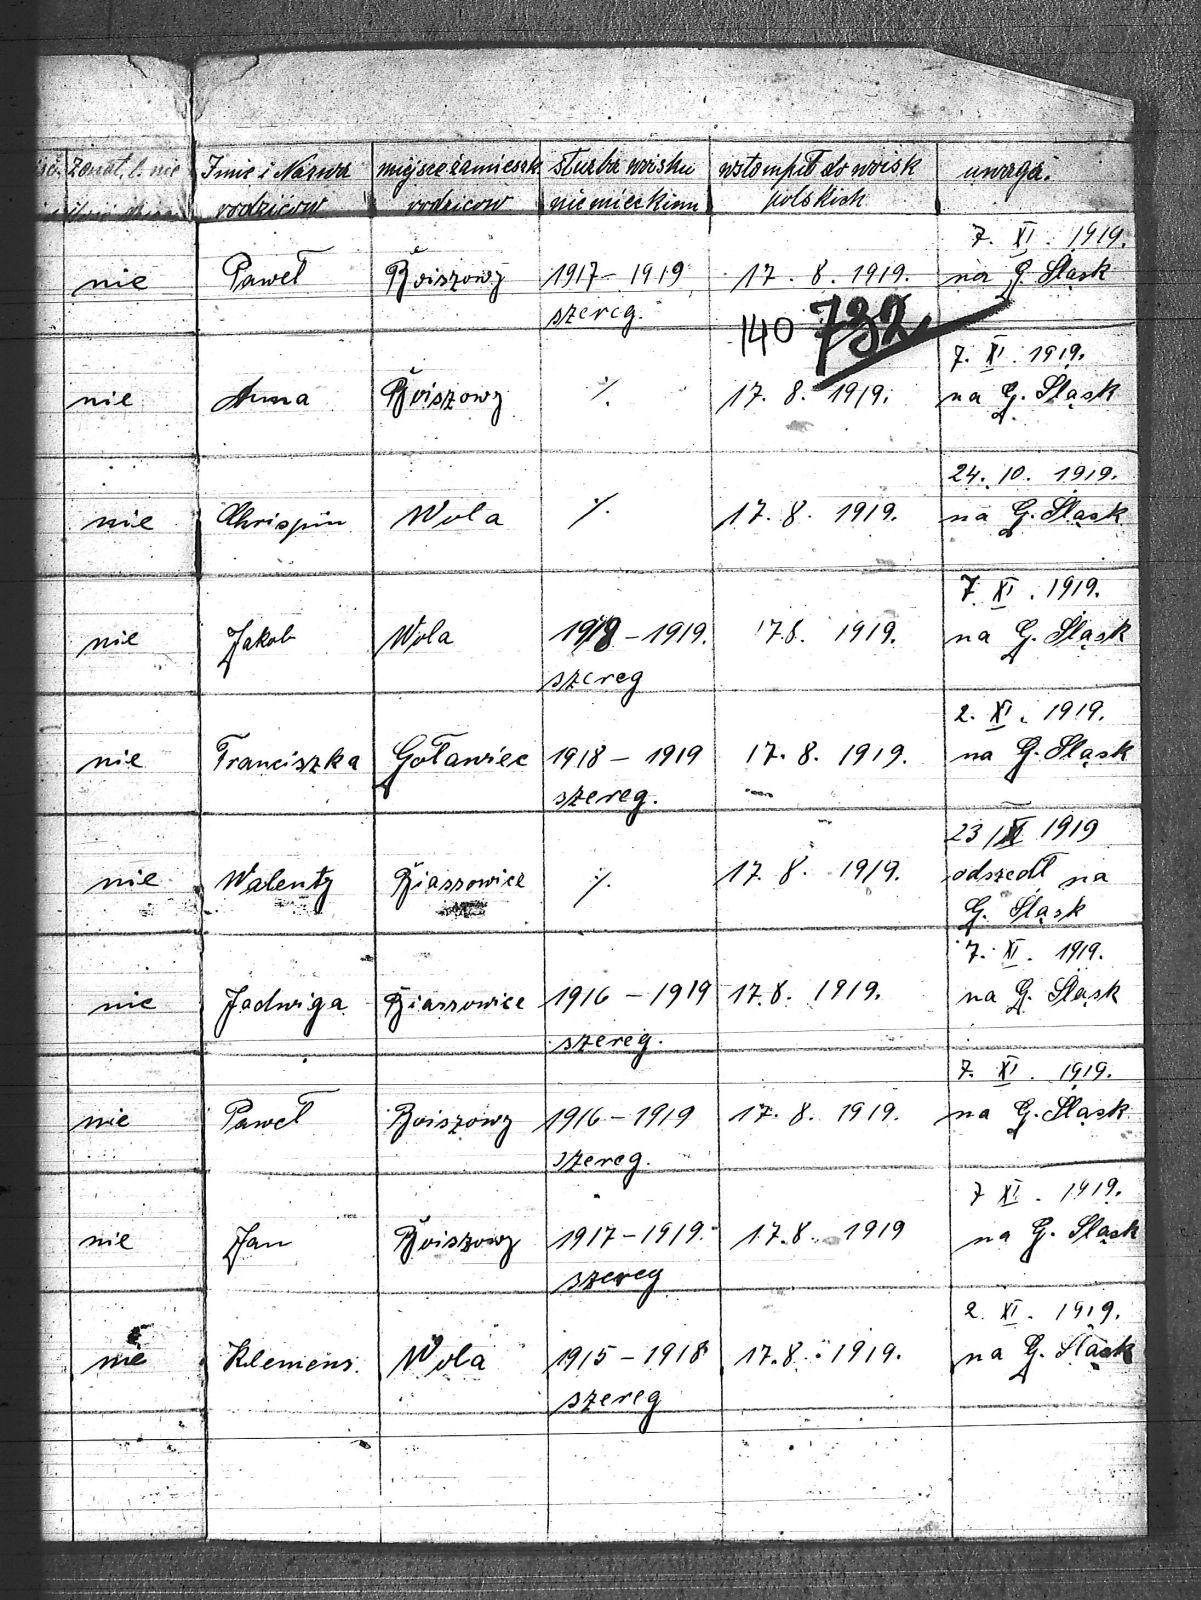 żonat. l. nie Imie i Nazwa mijsce zamieszk. służba woisku wstompił do woisk uwaga.
rodzicow rodzicow niemieckimu polskich
7. XI. 1919.
nie Paweł Boiszowy 1917 – 1919 17. 8. 1919. na G. Sląsk
szereg.
140 732
7. XI. 1919.
nie Anna Boiszowy ·/. 17. 8. 1919. na G. Sląsk
24. 10. 1919.
nie Chrispin Wola ·/. 17. 8. 1919. na G. Sląsk
7. XI. 1919.
nie Jakob Wola 1918 – 1919. 17.8. 1919. na G. Sląsk
szereg
2. XI. 1919.
nie Franciszka Goławiec 1918 – 1919 17. 8. 1919. na G. Sląsk
szereg.
23 / XI 1919
nie Walenty Biassowice ·/. 17. 8. 1919. odszedł na
G. Sląsk
7. XI. 1919.
nie Jadwiga Biassowice 1916 – 1919 17.8. 1919. na G. Sląsk
szereg.
7. XI. 1919.
nie Paweł Boiszowy 1916 – 1919 17. 8. 1919. na G. Sląsk
szereg.
7 XI. 1919.
nie Jan Boiszowy 1917 – 1919. 17.8. 1919 na G. Sląsk
szereg
2. XI. 1919.
nie Klemens. Wola 1915 – 1918 17.8. 1919. na G. Sląsk
szereg